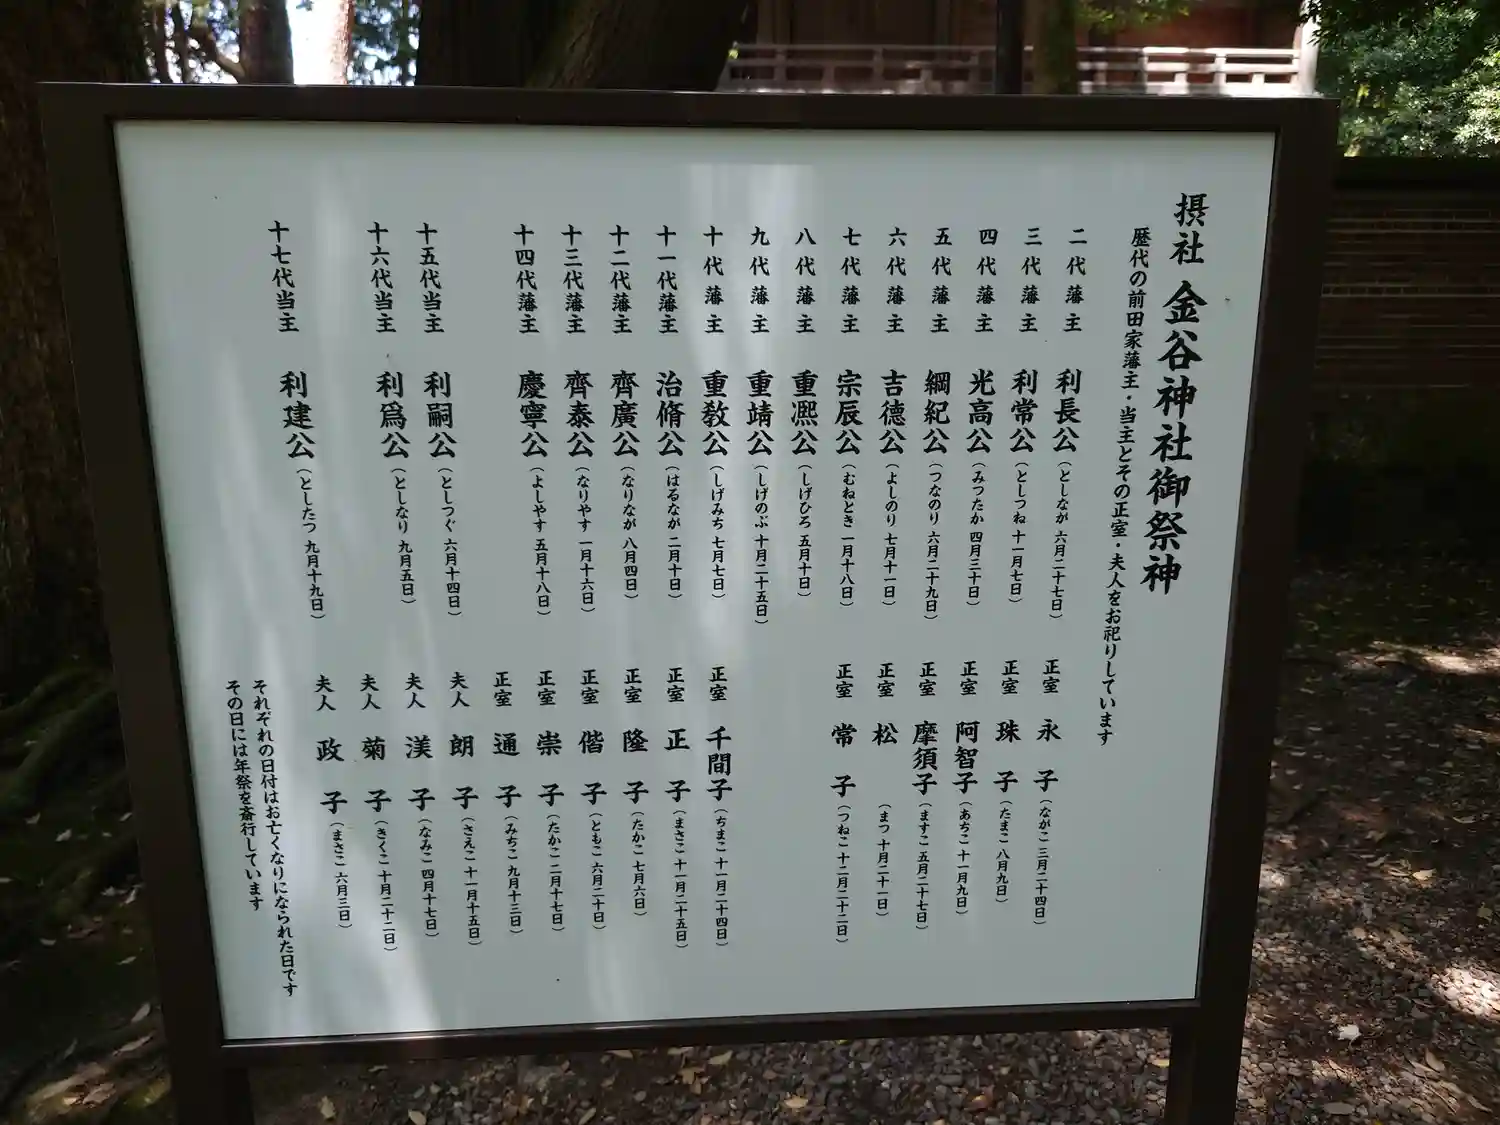 摂社 金谷神社御祭神
歴代の前田家藩主・当主とその正室・夫人をお祀りしています
二代藩主 利長公（としなが 六月二十七日） 正室 永子（ながこ 三月二十四日）
三代藩主 利常公（としつね 十一月七日） 正室 珠子（たまこ 八月九日）
四代藩主 光高公（みつたか 四月三十日） 正室 阿智子（あちこ 十一月九日）
五代藩主 綱紀公（つなのり 六月二十九日） 正室 摩須子（ますこ 五月二十七日）
六代藩主 吉徳公（よしのり 七月十一日） 正室 松（まつ 十月二十一日）
七代藩主 宗辰公（むねとき 一月十八日） 正室 常子（つねこ 十二月二十二日）
八代藩主 重凞公（しげひろ 五月十日）
九代藩主 重靖公（しげのぶ 十月二十五日）
十代藩主 重教公（しげみち 七月七日） 正室 千間子（ちまこ 十一月二十四日）
十一代藩主 治脩公（はるなが 二月十日） 正室 正子（まさこ 十一月二十五日）
十二代藩主 齊廣公（なりなが 八月四日） 正室 隆子（たかこ 七月六日）
十三代藩主 齊泰公（なりやす 一月十六日） 正室 偕子（ともこ 六月二十日）
十四代藩主 慶寧公（よしやす 五月十八日） 正室 崇子（たかこ 二月十七日）
正室 通子（みちこ 九月十三日）
十五代当主 利嗣公（としつぐ 六月十四日） 夫人 朗子（さえこ 十一月十五日）
十六代当主 利爲公（としなり 九月五日） 夫人 渼子（なみこ 四月十七日）
夫人 菊子（きくこ 十月二十二日）
十七代当主 利建公（としたつ 九月十九日） 夫人 政子（まさこ 六月三日）
それぞれの日付はお亡くなりになられた日です
その日には年祭を斎行しています